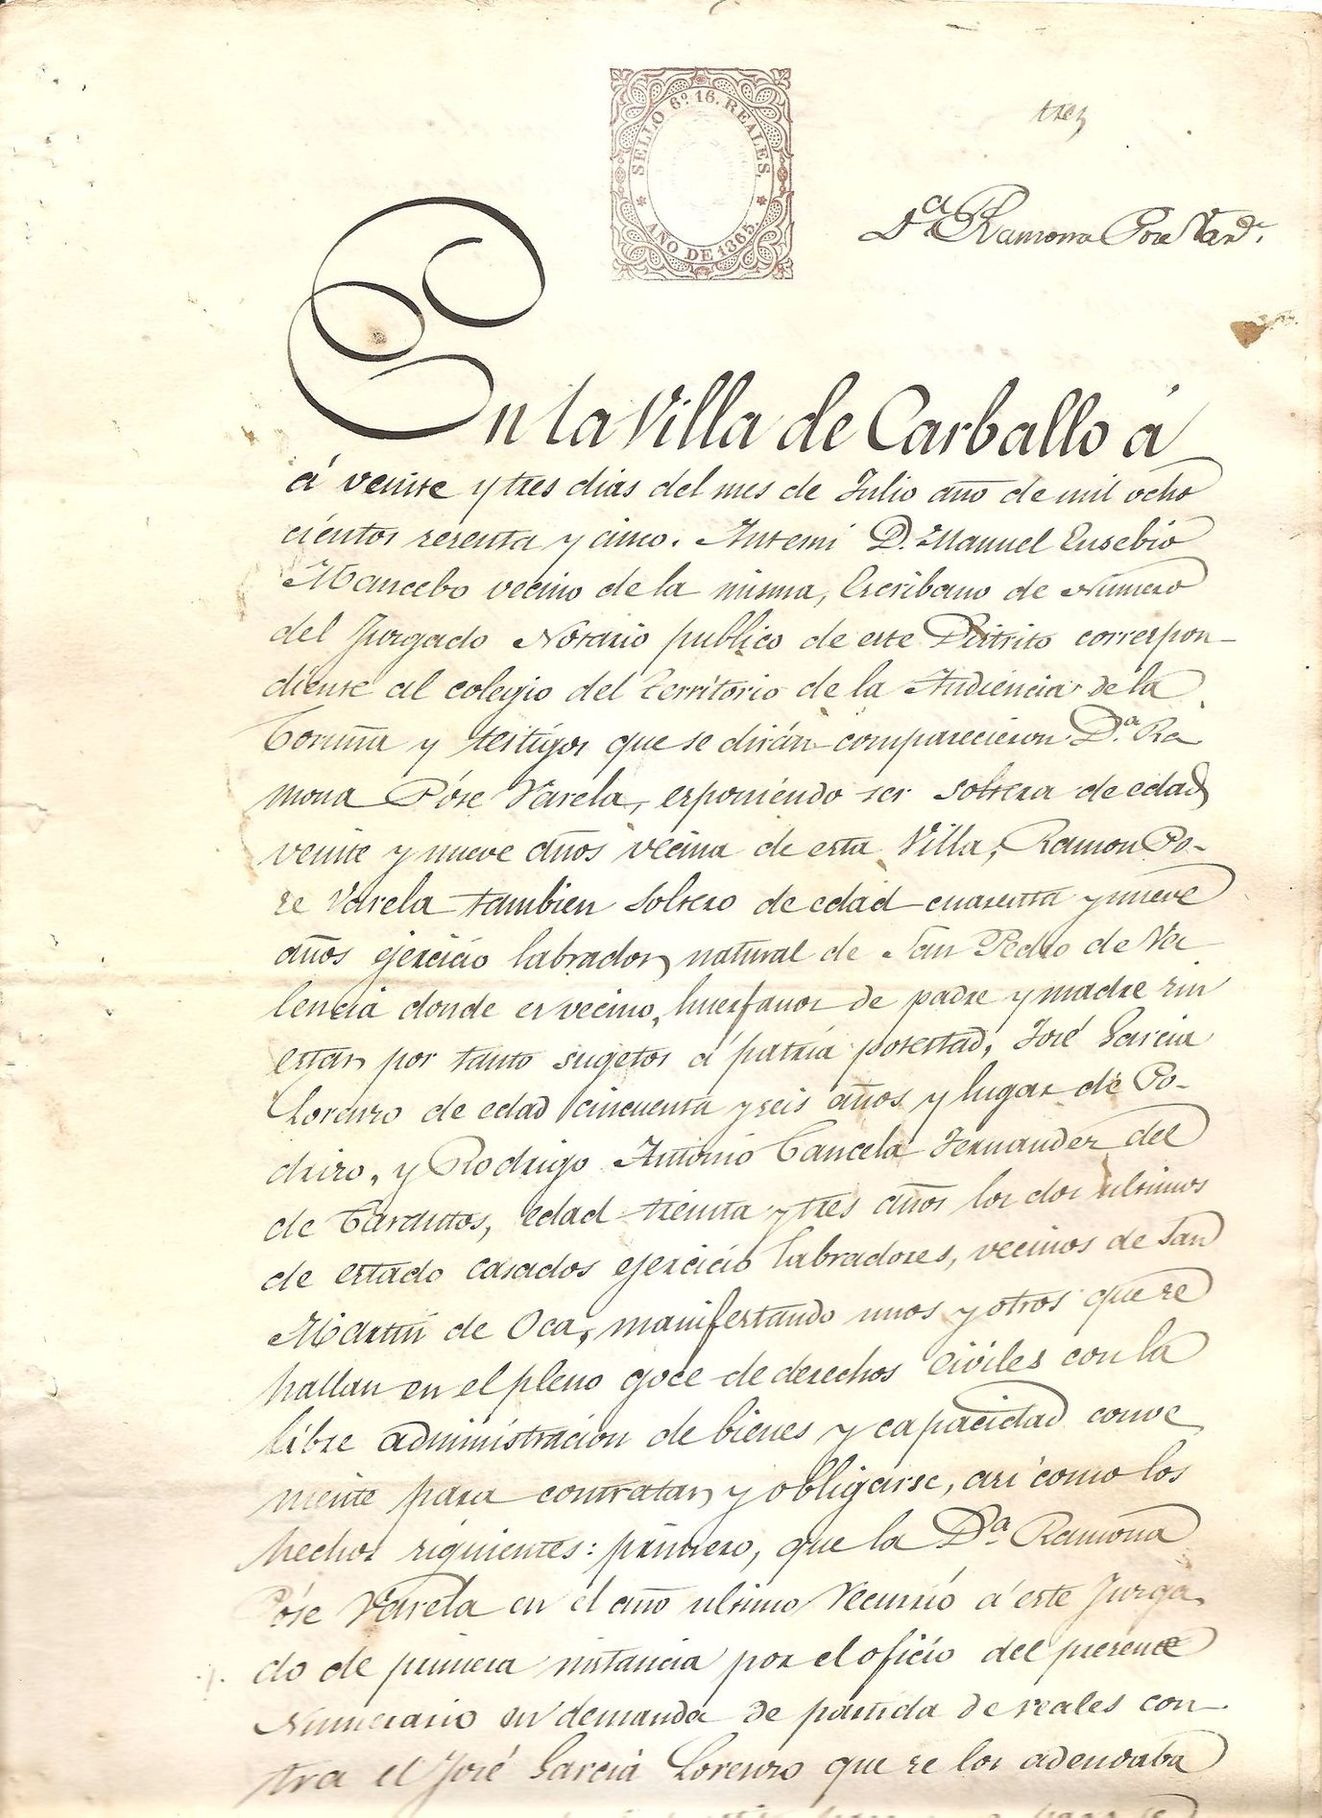 SELLO 6º 16. REALES.
AÑO DE 1865.
trez
D.ª Ramona Pose Var.ª
En la Villa de Carballo á
á veinte y tres dias del mes de Julio año de mil ocho
cientos sesenta y cinco. Antemi D. Manuel Eusebio
Mancebo vecino de la misma, Escribano de Numero
del Jurgado Notario publico de este Distrito correspon-
diente al colegio del territorio de la Audiencia de la
Coruña y testigos que se dirán comparecieron D.ª Ra
mona Póse Varela, esponiendo ser soltera de edad
veinte y nueve años vecina de esta Villa, Ramon Po-
se Varela tambien soltero de edad cuarenta y nueve
años ejercicio labrador, natural de San Pedro de Va
lencia donde es vecino, huerfanos de padre y madre sin
estar por tanto sugetos á patria potestad, José Garcia
Lorenzo de edad cincuenta y seis años y lugar de Po-
driro, y Rodrigo Antonio Cancela Fernandez del
de Carantos, edad treinta y tres años los dos ultimos
de estado casados ejercicio labradores, vecinos de San
Martin de Oca, manifestando unos y otros que se
hallan en el pleno goce de derechos civiles con la
libre administracion de bienes y capacidad conve
niente para contratar y obligarse, asi como los
hechos siguientes: primero, que la D.ª Ramona
Póse Varela en el año ultimo recurrió á este Jurga
do de primera instancia por el oficio del presente
Numerario en demanda de partida de reales con-
tra el José Garcia Lorenzo que se los adeudaba